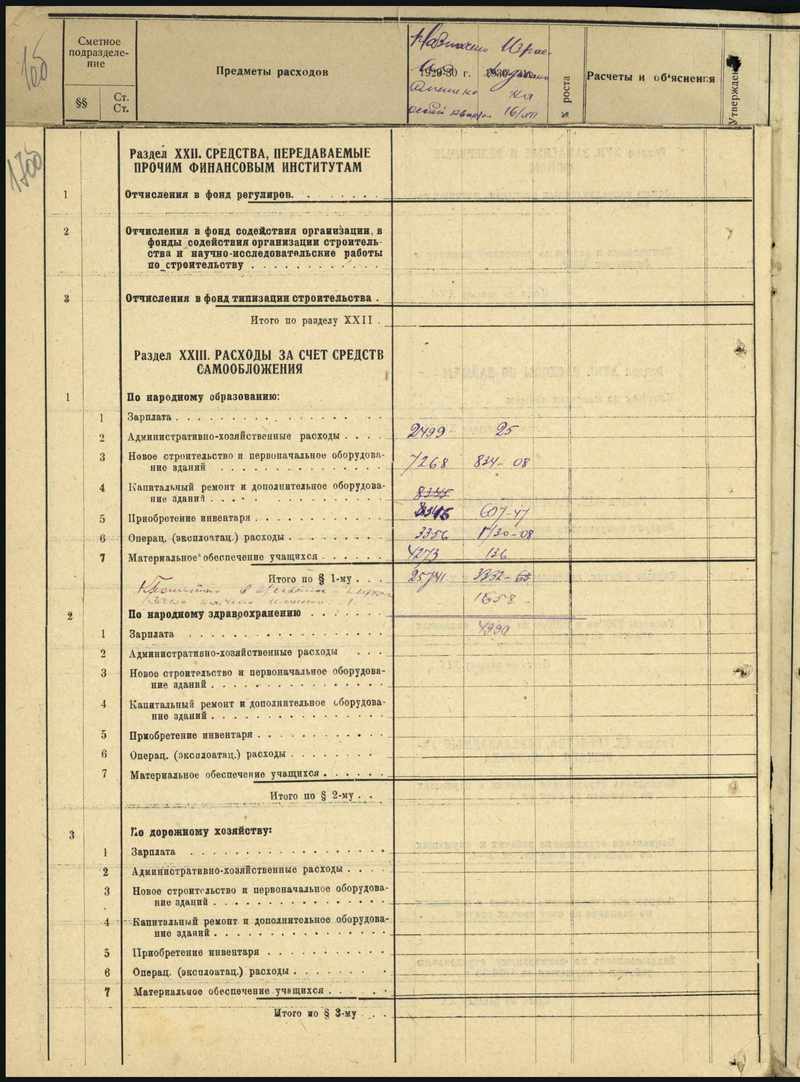 165
Сметное
подразделе-
ние
§§
Ст.
Ст.
Предметы расходов
1929-30 г.
16/VII
% роста
Расчеты и об'яснения
Утвержден
1765
Раздел XXII. СРЕДСТВА, ПЕРЕДАВАЕМЫЕ
ПРОЧИМ ФИНАНСОВЫМ ИНСТИТУТАМ
1 Отчисления в фонд регулиров. . . . . . . .
2 Отчисления в фонд содействия организации, в
фонды содействия организации строитель-
ства и научно-исследовательские работы
по строительству . . . . . . . . . . . .
3 Отчисления в фонд типизации строительства .
Итого по разделу XXII .
Раздел XXIII. РАСХОДЫ ЗА СЧЕТ СРЕДСТВ
САМООБЛОЖЕНИЯ
1 По народному образованию:
1 Зарплата . . . . . . . . . . . . . . . .
2 Административно-хозяйственные расходы . . . . 2499 25
3 Новое строительство и первоначальное оборудова-
ние зданий . . . . . . . . . . . . . . 7268 834-08
4 Капитальный ремонт и дополнительное оборудова-
ние зданий . . . . . . . . . . . . . . 8345
5 Приобретение инвентаря . . . . . . . . . . . 8345 607-47
6 Операц. (эксплоатац.) расходы . . . . . . . . 3356 1730-08
7 Материальное обеспечение учащихся . . . . . . 4273 136
Итого по § 1-му . . . 25741 3332-63
1658
2 По народному здравоохранению . . . . . . .
1 Зарплата . . . . . . . . . . . . . . . . 4990
2 Административно-хозяйственные расходы . . .
3 Новое строительство и первоначальное оборудова-
ние зданий . . . . . . . . . . . . . .
4 Капитальный ремонт и дополнительное оборудова-
ние зданий . . . . . . . . . . . . . .
5 Приобретение инвентаря . . . . . . . . . . .
6 Операц. (эксплоатац.) расходы . . . . . . . .
7 Материальное обеспечение учащихся . . . . . .
Итого по § 2-му . .
3 По дорожному хозяйству:
1 Зарплата . . . . . . . . . . . . . . . .
2 Административно-хозяйственные расходы . . . .
3 Новое строительство и первоначальное оборудова-
ние зданий . . . . . . . . . . . . . .
4 Капитальный ремонт и дополнительное оборудова-
ние зданий . . . . . . . . . . . . . .
5 Приобретение инвентаря . . . . . . . . . . .
6 Операц. (эксплоатац.) расходы . . . . . . . .
7 Материальное обеспечение учащихся . . . . . .
Итого по § 3-му . . .